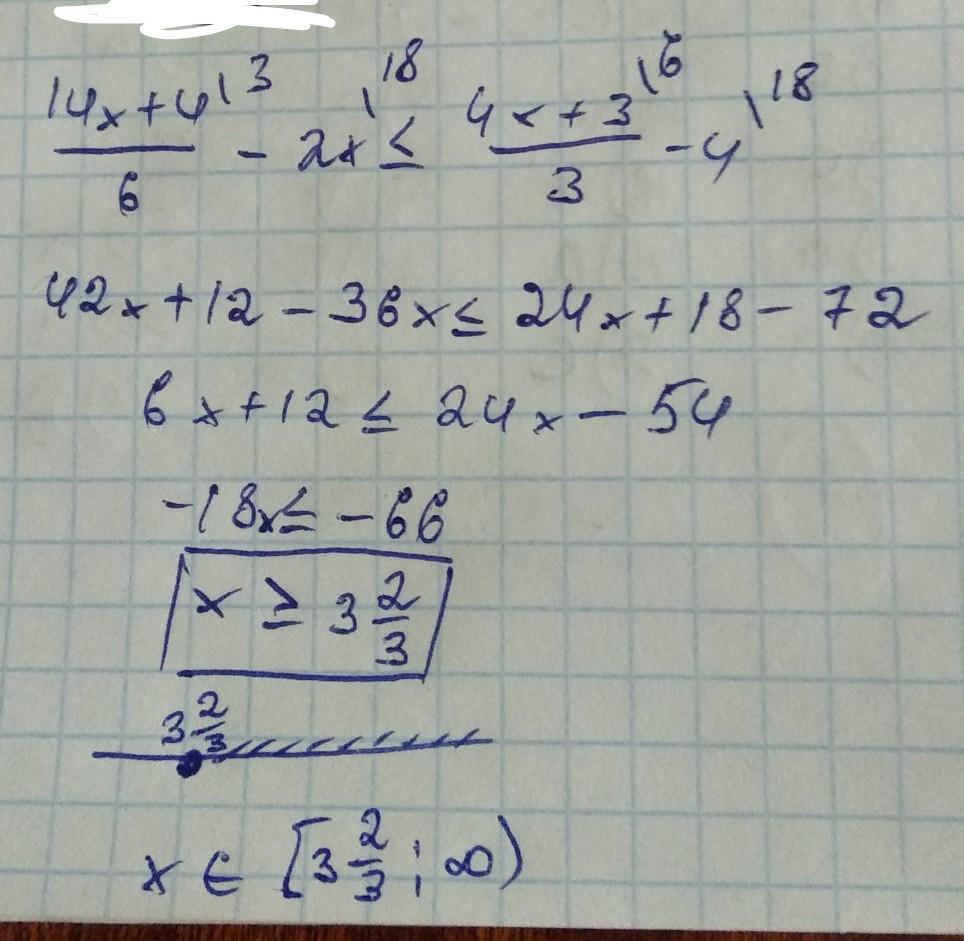 \frac{14x+4}{6}^{\3} - 2x^{\18} ≤ \frac{4x+3}{3}^{\6} - 4^{\18}
42x+12-36x≤24x+18-72
6x+12≤24x-54
-18x≤-66
x ≥ 3 \frac{2}{3}
3 \frac{2}{3}
x ∈ [3 \frac{2}{3} ; ∞)